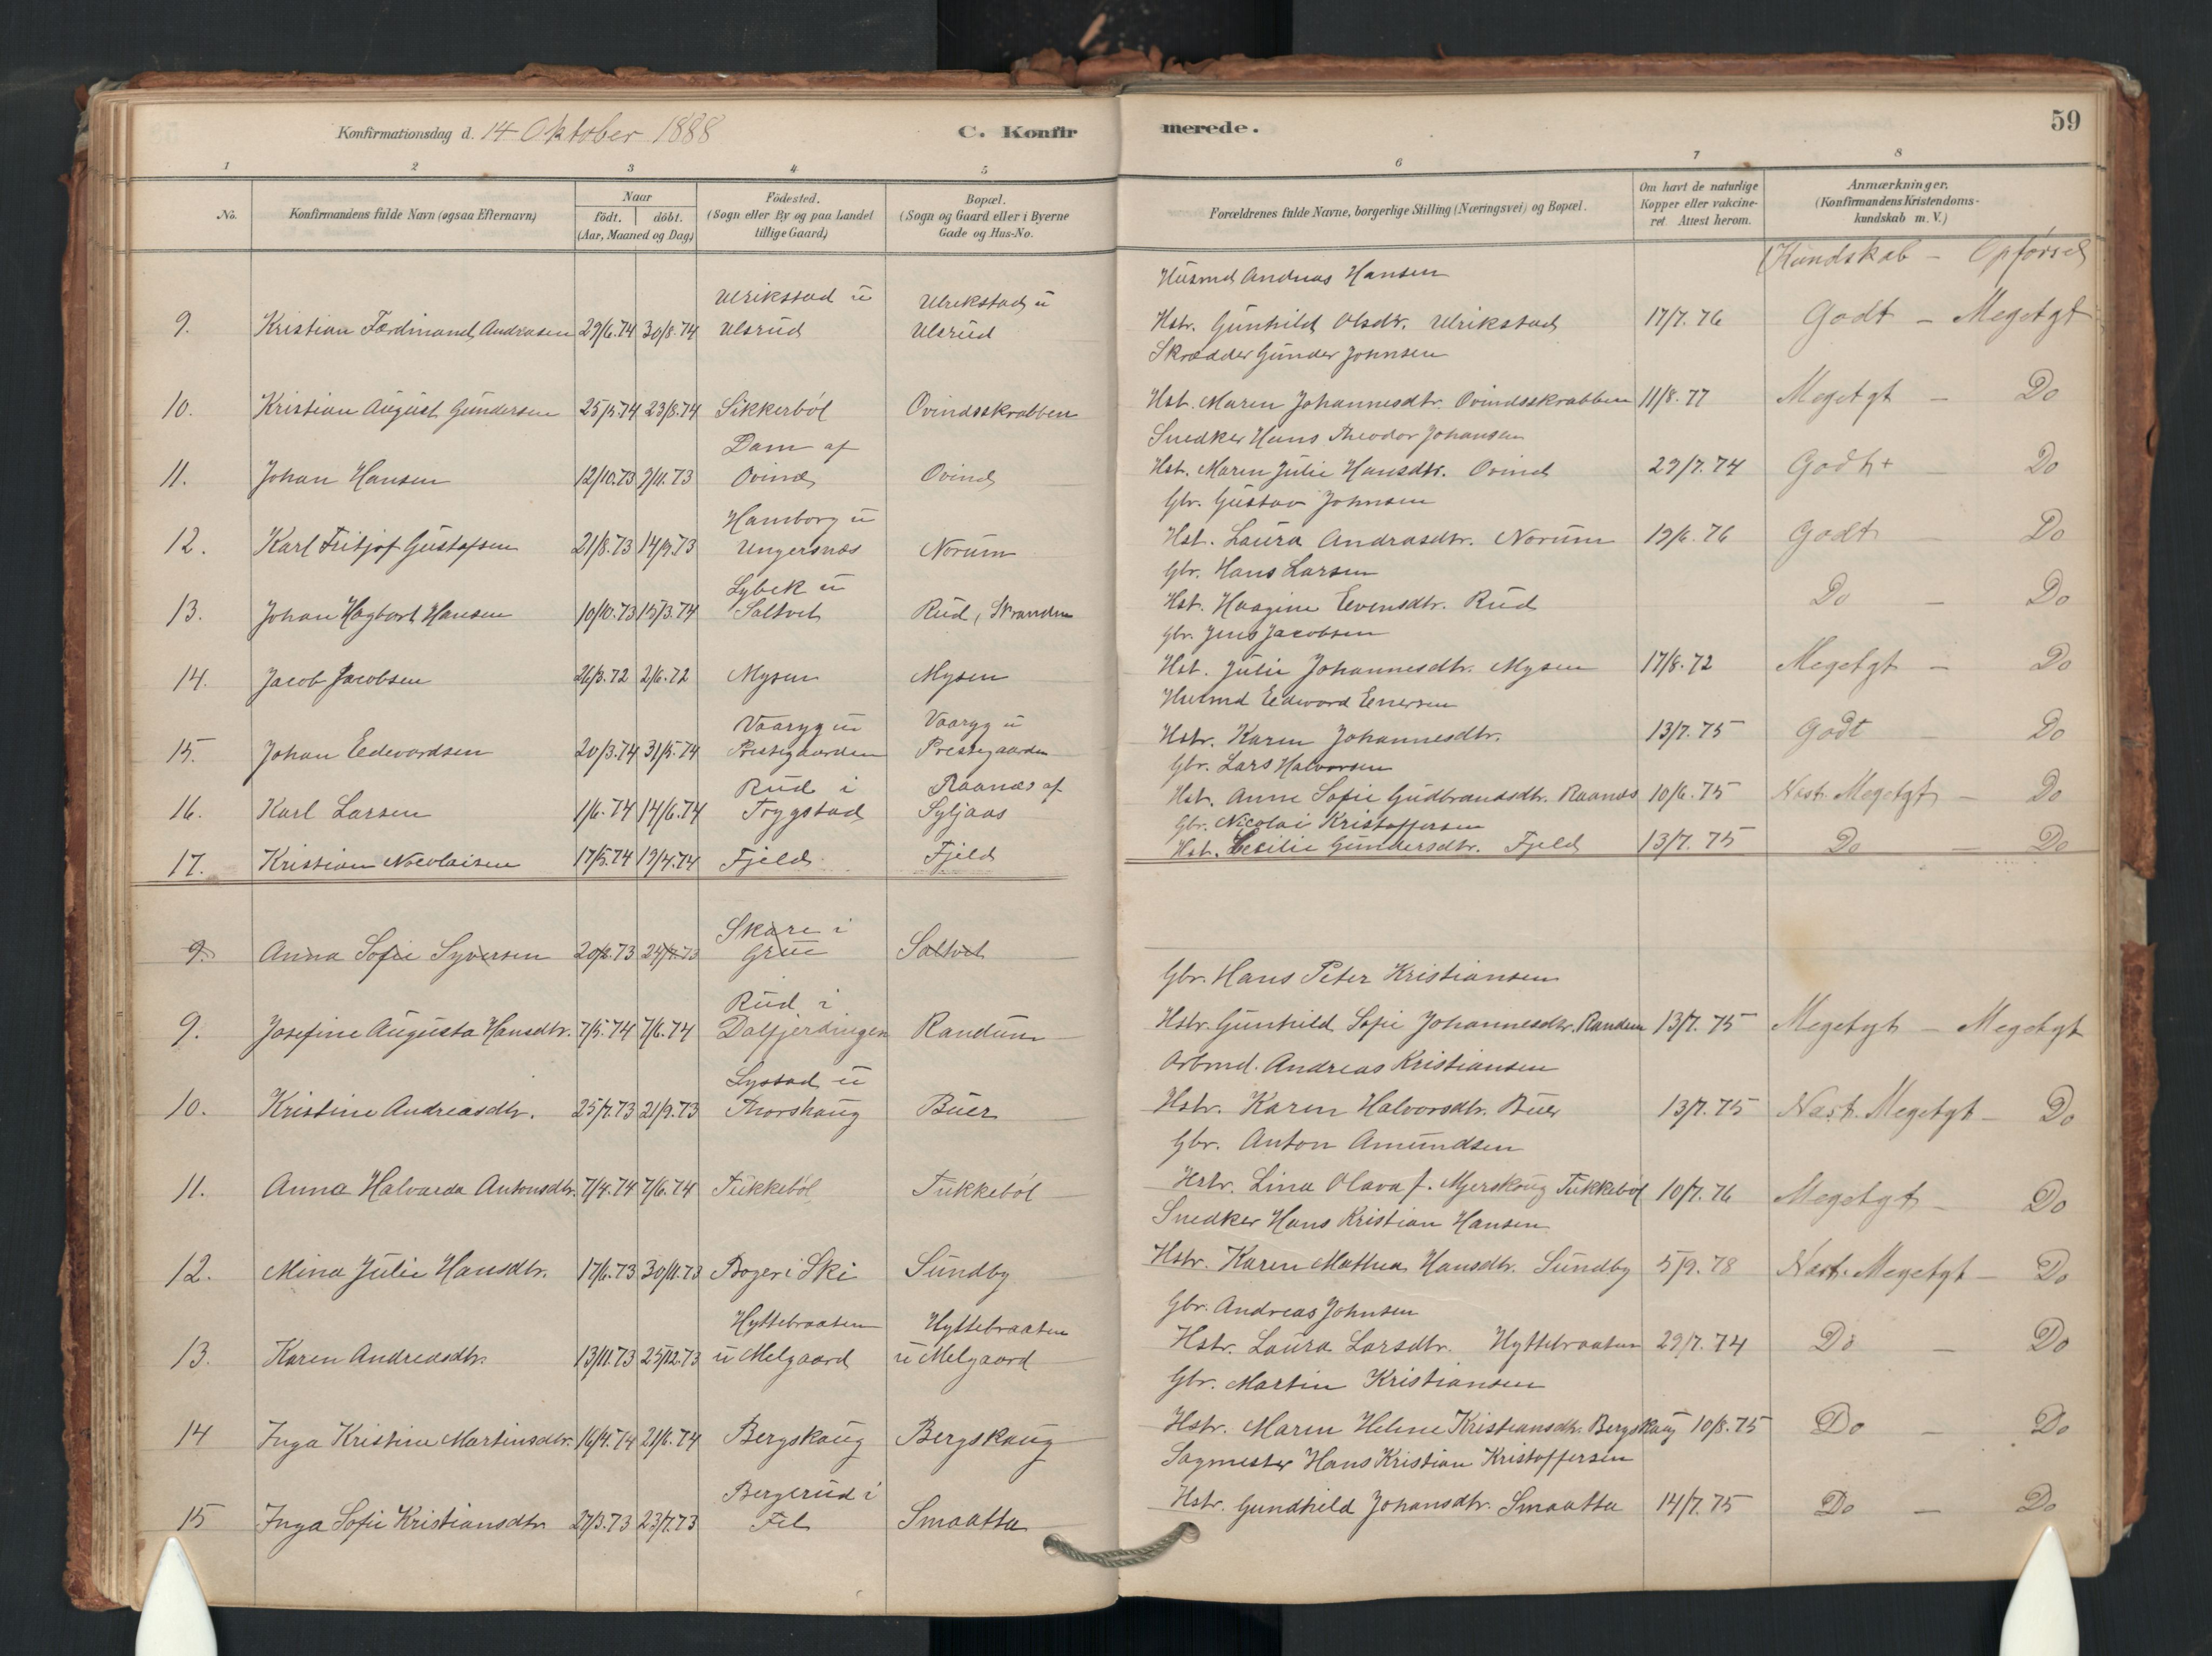 Konfirmationsdag d. 14 Oktober 1888
C. Konfirmerede.
59
1 2 3 4 5 6 7 8
No.
Konfirmandens fulde Navn (ogsaa Efternavn)
Naar
födt. döbt.
(Aar, Maaned og Dag)
Födested.
(Sogn eller By og paa Landet
tillige Gaard)
Bopæl.
(Sogn og Gaard eller i Byerne
Gade og Hus-No.
Forældrenes fulde Navne, borgerlige Stilling (Næringsvei) og Bopæl.
Om havt de naturlige
Kopper eller vakcine-
ret Attest herom.
Anmærkninger.
(Konfirmandens Kristendoms-
kundskab m. V.)
Kundskab - Opførsel
Husmd Andreas Hansen
Ulrikstad u Ulrikstad u
9. Kristian Ferdinand Andrasen 29/6.74 30/8.74 Ulsrud Ulsrud Hstr. Gunhild Olsdtr. Ulrikstad 17/7.76 Godt - Megetgt
Skrædder Gunder Johnsen
10. Kristian August Gundersen 25/5.74 23/8.74 Sikkerböl Ovindsskrabben Hst. Maren Johannesdtr. Ovindsskrabben 11/8.77 Megetgt - Do
Dam af Snedker Hans Theodor Johansen
11. Johan Hansen 12/10.73 9/11.73 Ovind Ovind Hst. Maren Julie Hansdtr. Ovind 29/7.74 Godt+ - Do
Hamborg u Gbr. Gustav Johnsen
12. Karl Fritjof Gustafsen 21/8.73 14/9.73 Ungersnæs Norum Hst. Laura Andrasdtr. Norum 19/6.76 Godt - Do
Lybek u Gbr. Hans Larsen
13. Johan Hagbart Hansen 10/10.73 15/3.74 Saltvet Rud, Stranden Hst. Haagine Evensdtr. Rud Do - Do
Gbr. Jens Jacobsen
14. Jacob Jacobsen 26/3.72 2/6.72 Mysen Mysen Hst. Julie Johannesdtr. Mysen 17/8.72 Megetgt - Do
Vaaryg u Vaaryg u Husmd Edevard Enersen
15. Johan Edevardsen 20/3.74 31/5.74 Prestegaarden Prestegaarden Hstr. Karen Johannesdtr. 13/7.75 Godt - Do
Rud i Raanæs af Gbr. Lars Halvorsen
16. Karl Larsen 1/6.74 14/6.74 Trygstad Syljaas Hst. Anne Sofie Gudbrandsdtr. Raanæs 10/6.75 Næst. Megetgt - Do
Gbr. Nicolai Kristoffersen
17. Kristian Nicolaisen 17/5.74 19/4.74 Fjeld Fjeld Hst. Cecilie Gundersdtr. Fjeld 13/7.75 Do - Do
Skare i
9. Anna Sofie Syversen 20/2.73 Grue Saltvet
Rud i Gbr. Hans Peter Kristiansen
9. Josefine Augusta Hansdtr. 7/5.74 7/6.74 Dalfjerdingen Randum Hstr. Gunhild Sofie Johannesdtr. Randum 13/7.75 Megetgt - Megetgt
Lystad u Arbmd. Andreas Kristiansen
10. Kristine Andreasdtr. 25/7.73 21/9.73 Thorshaug Buer Hstr. Karen Halvorsdtr. Buer 13/7.75 Næst. Megetgt - Do
Gbr. Anton Amundsen
11. Anna Halvarda Antonsdtr. 7/4.74 7/6.74 Tukkeböl Tukkeböl Hstr. Lina Olava f. Myrskoug Tukkeböl 10/7.76 Megetgt - Do
Snedker Hans Kristian Hansen
12. Mina Julie Hansdtr. 17/6.73 30/11.73 Bøger i Ski Sundby Hstr. Karen Mathea Hansdtr. Sundby 5/9.78 Næst. Megetgt - Do
Hyttebraaten Hyttebraaten Gbr. Andreas Johnsen
13. Karen Andreasdtr. 13/11.73 25/12.73 u Melgaard u Melgaard Hstr. Laura Larsdtr. Hyttebraaten 29/7.74 Do - Do
Gbr. Martin Kristiansen
14 Inga Kristine Martinsdtr. 16/4.74 21/6.74 Bergskaug Bergskaug Hstr. Maren Helene Kristiansdtr. Bergskaug 10/8.75 Do - Do
Bergerud i Sagmester Hans Kristian Kristoffersen
15 Inga Sofie Kristiansdtr 27/3.73 23/7.73 Fet Smaatta Hstr. Gundhild Johansdtr. Smaatta 14/7.75 Do - Do